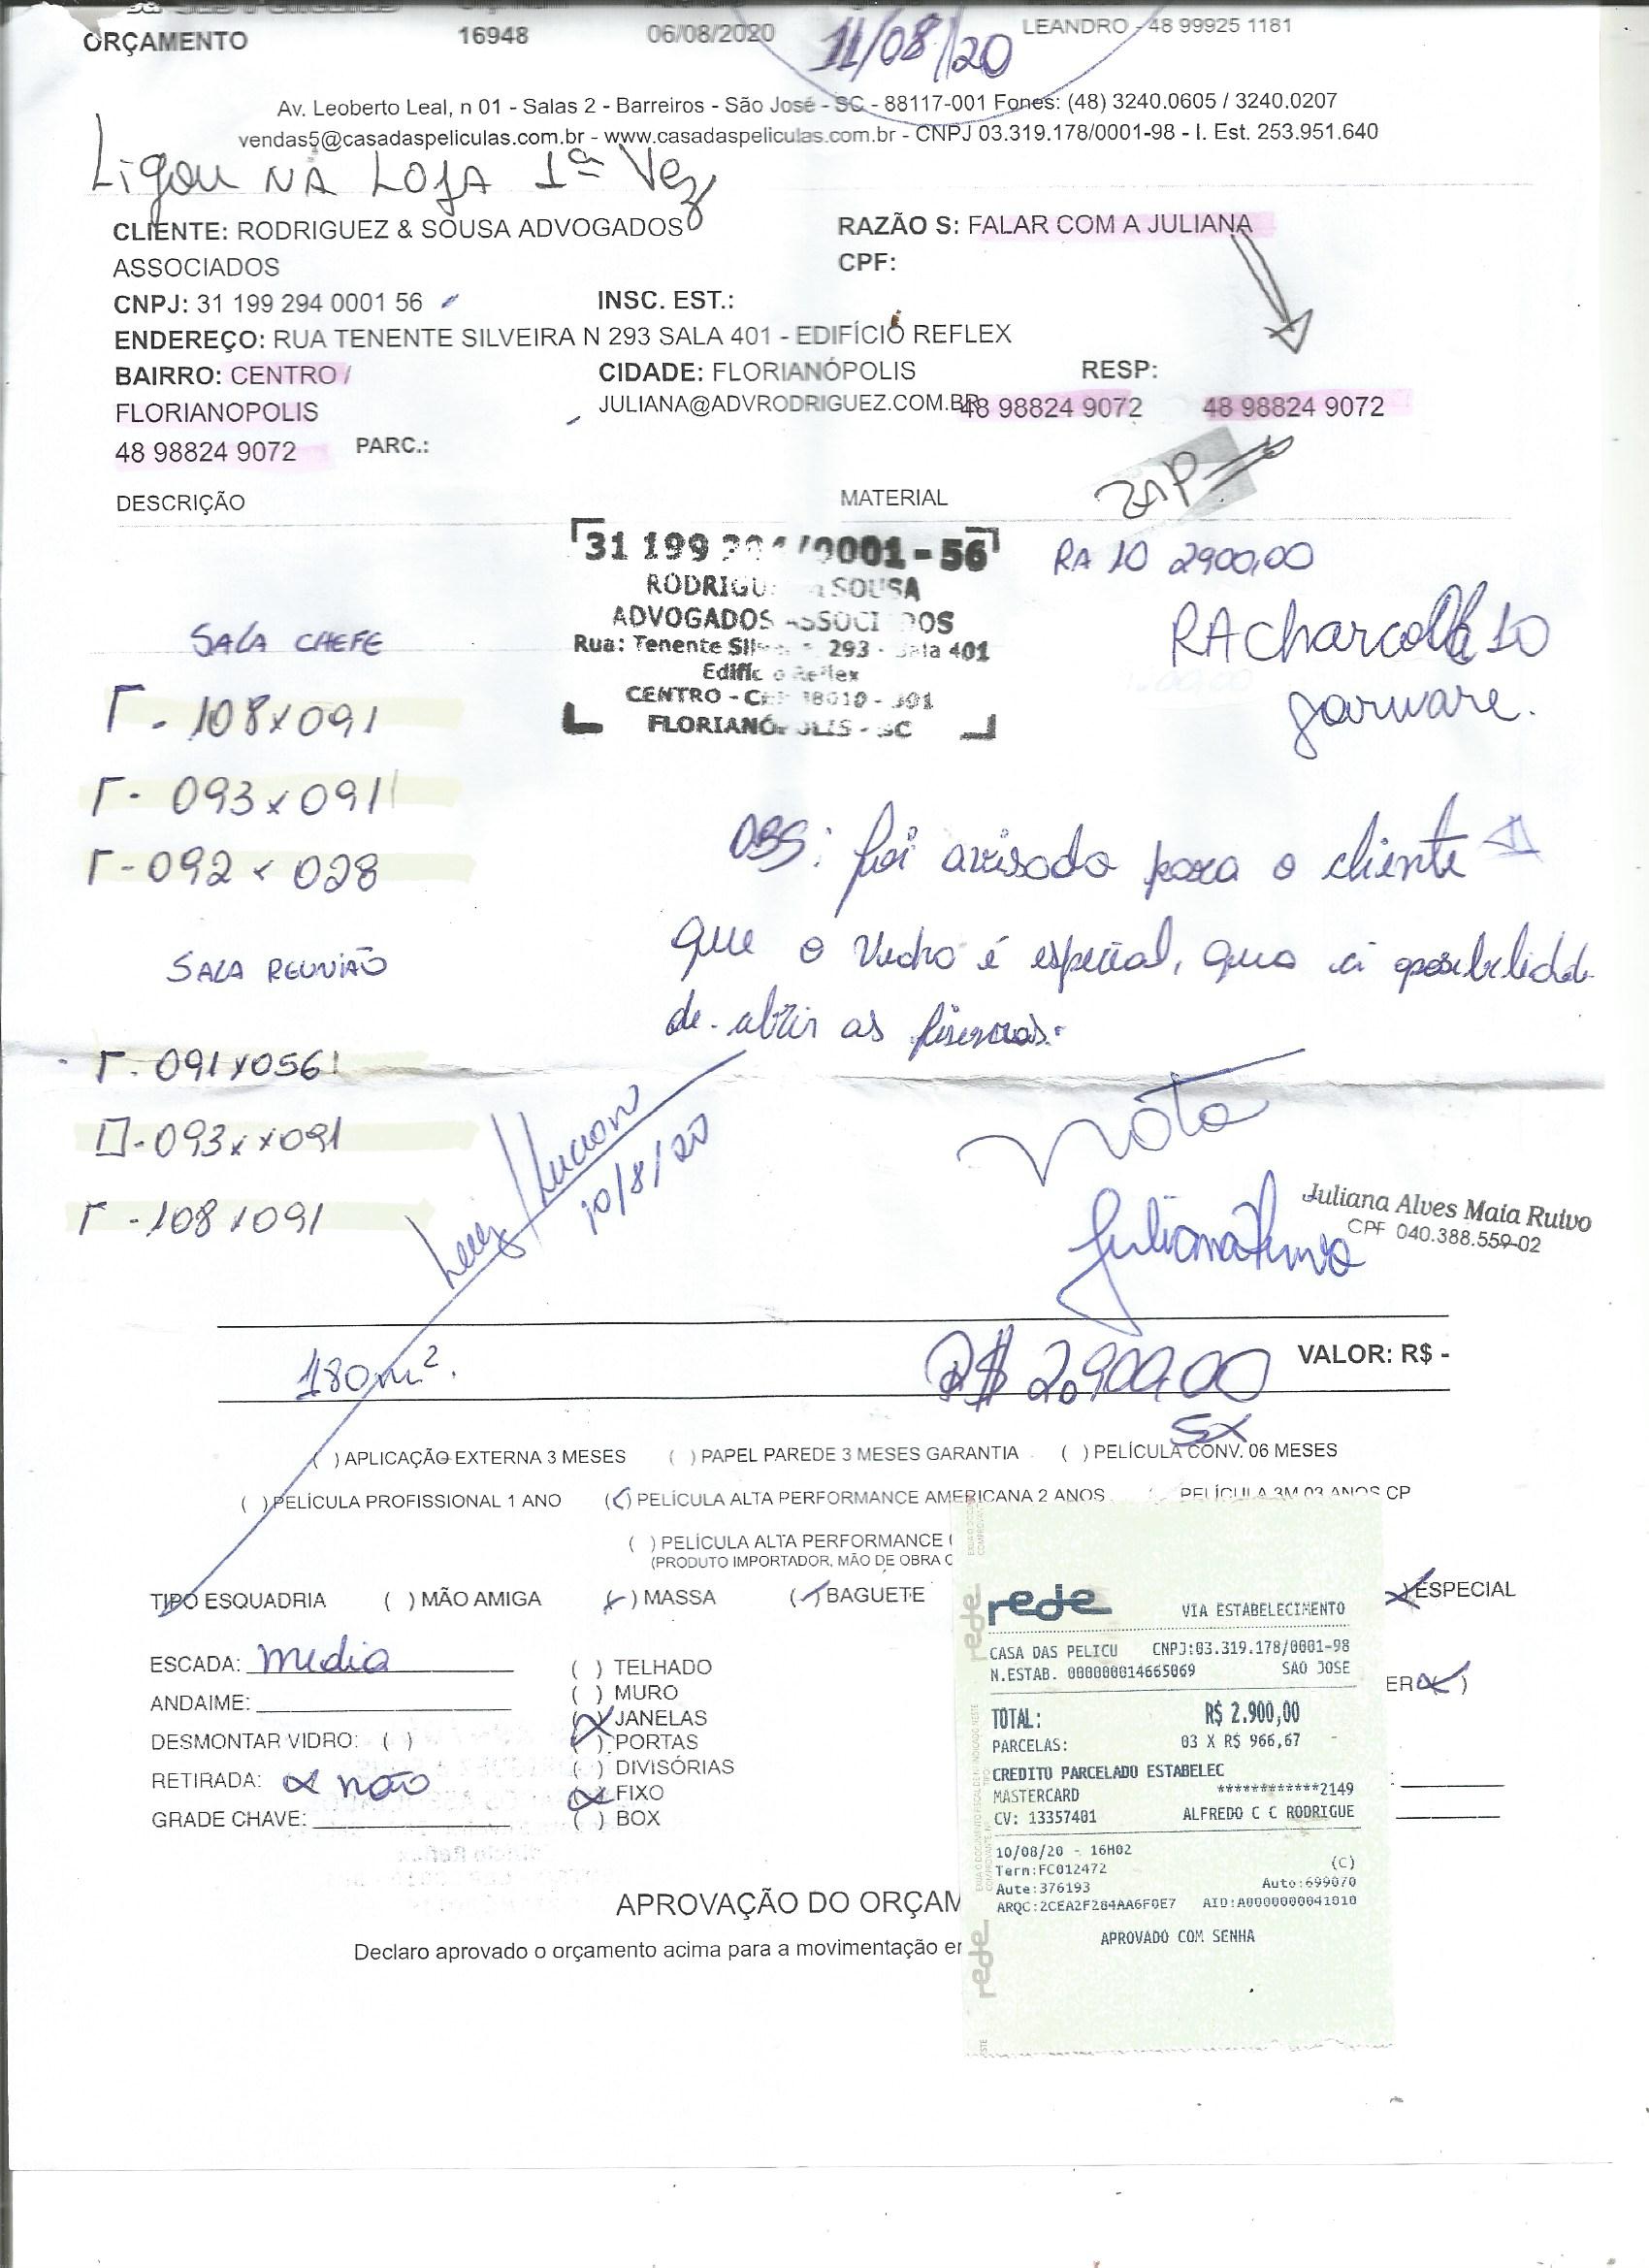 ORÇAMENTO 16948 06/08/2020 11/08/20 LEANDRO - 48 99925 1181
Av. Leoberto Leal, n 01 - Salas 2 - Barreiros - São José - SC - 88117-001 Fones: (48) 3240.0605 / 3240.0207
vendas5@casadaspeliculas.com.br - www.casadaspeliculas.com.br - CNPJ 03.319.178/0001-98 - I. Est. 253.951.640
Ligou NA LOJA 1ª Vez
CLIENTE: RODRIGUEZ & SOUSA ADVOGADOS RAZÃO S: FALAR COM A JULIANA
ASSOCIADOS CPF:
CNPJ: 31 199 294 0001 56 INSC. EST.:
ENDEREÇO: RUA TENENTE SILVEIRA N 293 SALA 401 - EDIFÍCIO REFLEX
BAIRRO: CENTRO / CIDADE: FLORIANÓPOLIS RESP:
FLORIANOPOLIS JULIANA@ADVRODRIGUEZ.COM.BR 48 98824 9072 48 98824 9072
48 98824 9072 PARC.:
ZAP
DESCRIÇÃO MATERIAL
31 199 /0001-56
SOUSA
ADVOGADOS
Rua: Tenente 293 - 401
CENTRO -
FLORIANÓ - SC
RA 10 2900,00
RA Charcoal 10
garware.
SALA CHEFE
Γ - 108 x 091
Γ - 093 x 091
Γ - 092 x 028
OBS: foi avisado para o cliente
que o Vidro é especial,
de abrir as
SALA REUNIÃO
Γ - 091 x 056
093 x x 091
Γ - 108 x 091
Luciano
10/8/20
Nota
Juliana
Juliana Alves Maia Ruivo
CPF 040.388.559-02
180 m². R$ 2.900,00 VALOR: R$ -
5X
( ) APLICAÇÃO EXTERNA 3 MESES ( ) PAPEL PAREDE 3 MESES GARANTIA ( ) PELÍCULA CONV. 06 MESES
( ) PELÍCULA PROFISSIONAL 1 ANO ( ) PELÍCULA ALTA PERFORMANCE AMERICANA 2 ANOS PELÍCULA 3M 03 ANOS CP
( ) PELÍCULA ALTA PERFORMANCE (
(PRODUTO IMPORTADOR, MÃO DE OBRA
TIPO ESQUADRIA ( ) MÃO AMIGA ( ) MASSA ( ) BAGUETE ) ESPECIAL
ESCADA: media
ANDAIME:
DESMONTAR VIDRO: ( )
RETIRADA: x não
GRADE CHAVE:
( ) TELHADO
( ) MURO
(x) JANELAS
( ) PORTAS
( ) DIVISÓRIAS
(x) FIXO
( ) BOX
ER (x)
rede
VIA ESTABELECIMENTO
CASA DAS PELICU CNPJ:03.319.178/0001-98
N.ESTAB. 000000014665069 SAO JOSE
TOTAL: R$ 2.900,00
PARCELAS: 03 X R$ 966,67
CREDITO PARCELADO ESTABELEC
MASTERCARD ************2149
CV: 13357401 ALFREDO C C RODRIGUE
10/08/20 - 16H02
Term:FC012472 (C)
Aute:376193 Auto:699070
ARQC:2CEA2F284AA6F0E7 AID:A0000000041010
APROVADO COM SENHA
rede
rede
APROVAÇÃO DO ORÇAM
Declaro aprovado o orçamento acima para a movimentação e